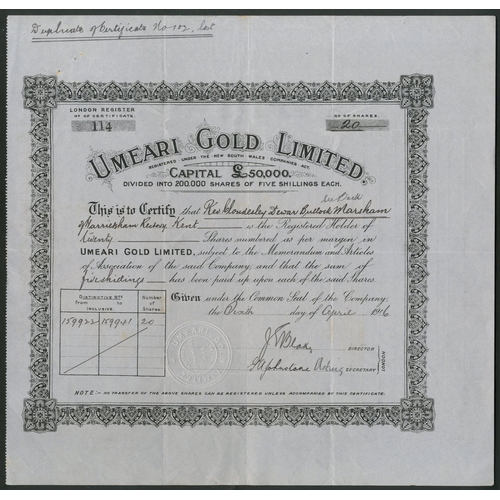 Duplicate of Certificate No 102, lost
LONDON REGISTER
No OF CERTIFICATE.
114
No OF SHARES.
20
UMEARI GOLD LIMITED.
REGISTERED UNDER THE NEW SOUTH WALES COMPANIES ACT.
CAPITAL £50,000.
DIVIDED INTO 200,000 SHARES OF FIVE SHILLINGS EACH.
This is to Certify that Rev Cloudesley Dewar Bullock Marsham
of Harrietsham Rectory Kent is the Registered Holder of
Twenty Shares numbered as per margin in
UMEARI GOLD LIMITED, subject to the Memorandum and Articles
of Association of the said Company and that the sum of
five shillings has been paid up upon each of the said Shares.
DISTINCTIVE Nos
from to
INCLUSIVE.
Number of Shares
159922 159941 20
Given under the Common Seal of the Company
the Sixth day of April 1906
DIRECTOR
Johnstone Acting SECRETARY
LONDON
NOTE:- NO TRANSFER OF THE ABOVE SHARES CAN BE REGISTERED UNLESS ACCOMPANIED BY THIS CERTIFICATE.